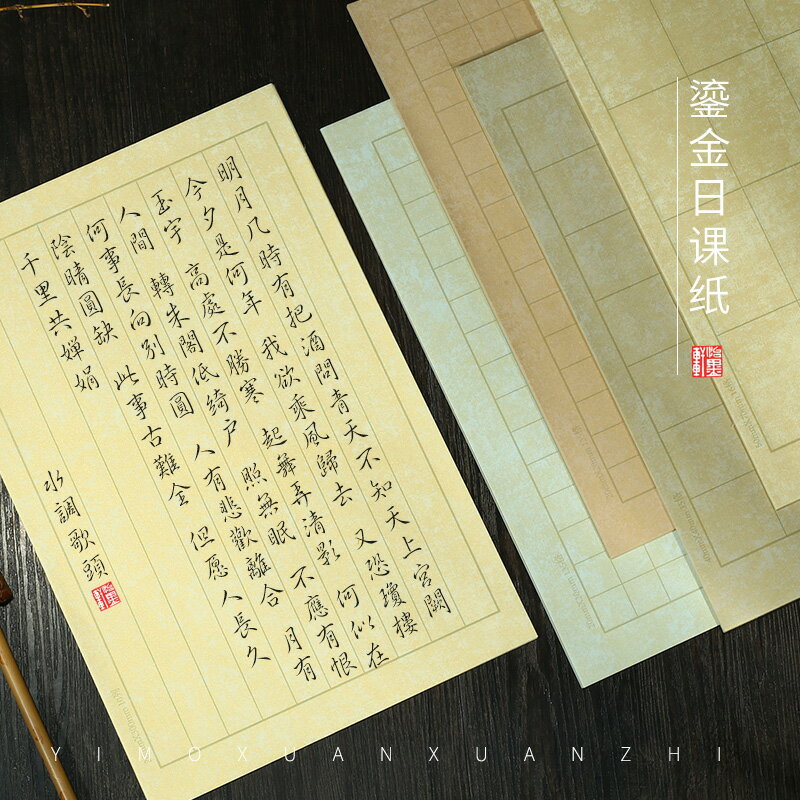 鎏金日课纸
明月几時有把酒問青天不知天上宮闕
今夕是何年 我欲乘風歸去 又恐瓊樓
玉宇 高處不勝寒 起舞弄清影 何似在
人間 轉朱閣低綺户 照無眠 不應有恨
何事長向别時圓 人有悲歡離合 月有
陰晴圓缺 此事古難全 但愿人長久
千里共嬋娟
水調歌頭
YIMOXUANXUANZHI